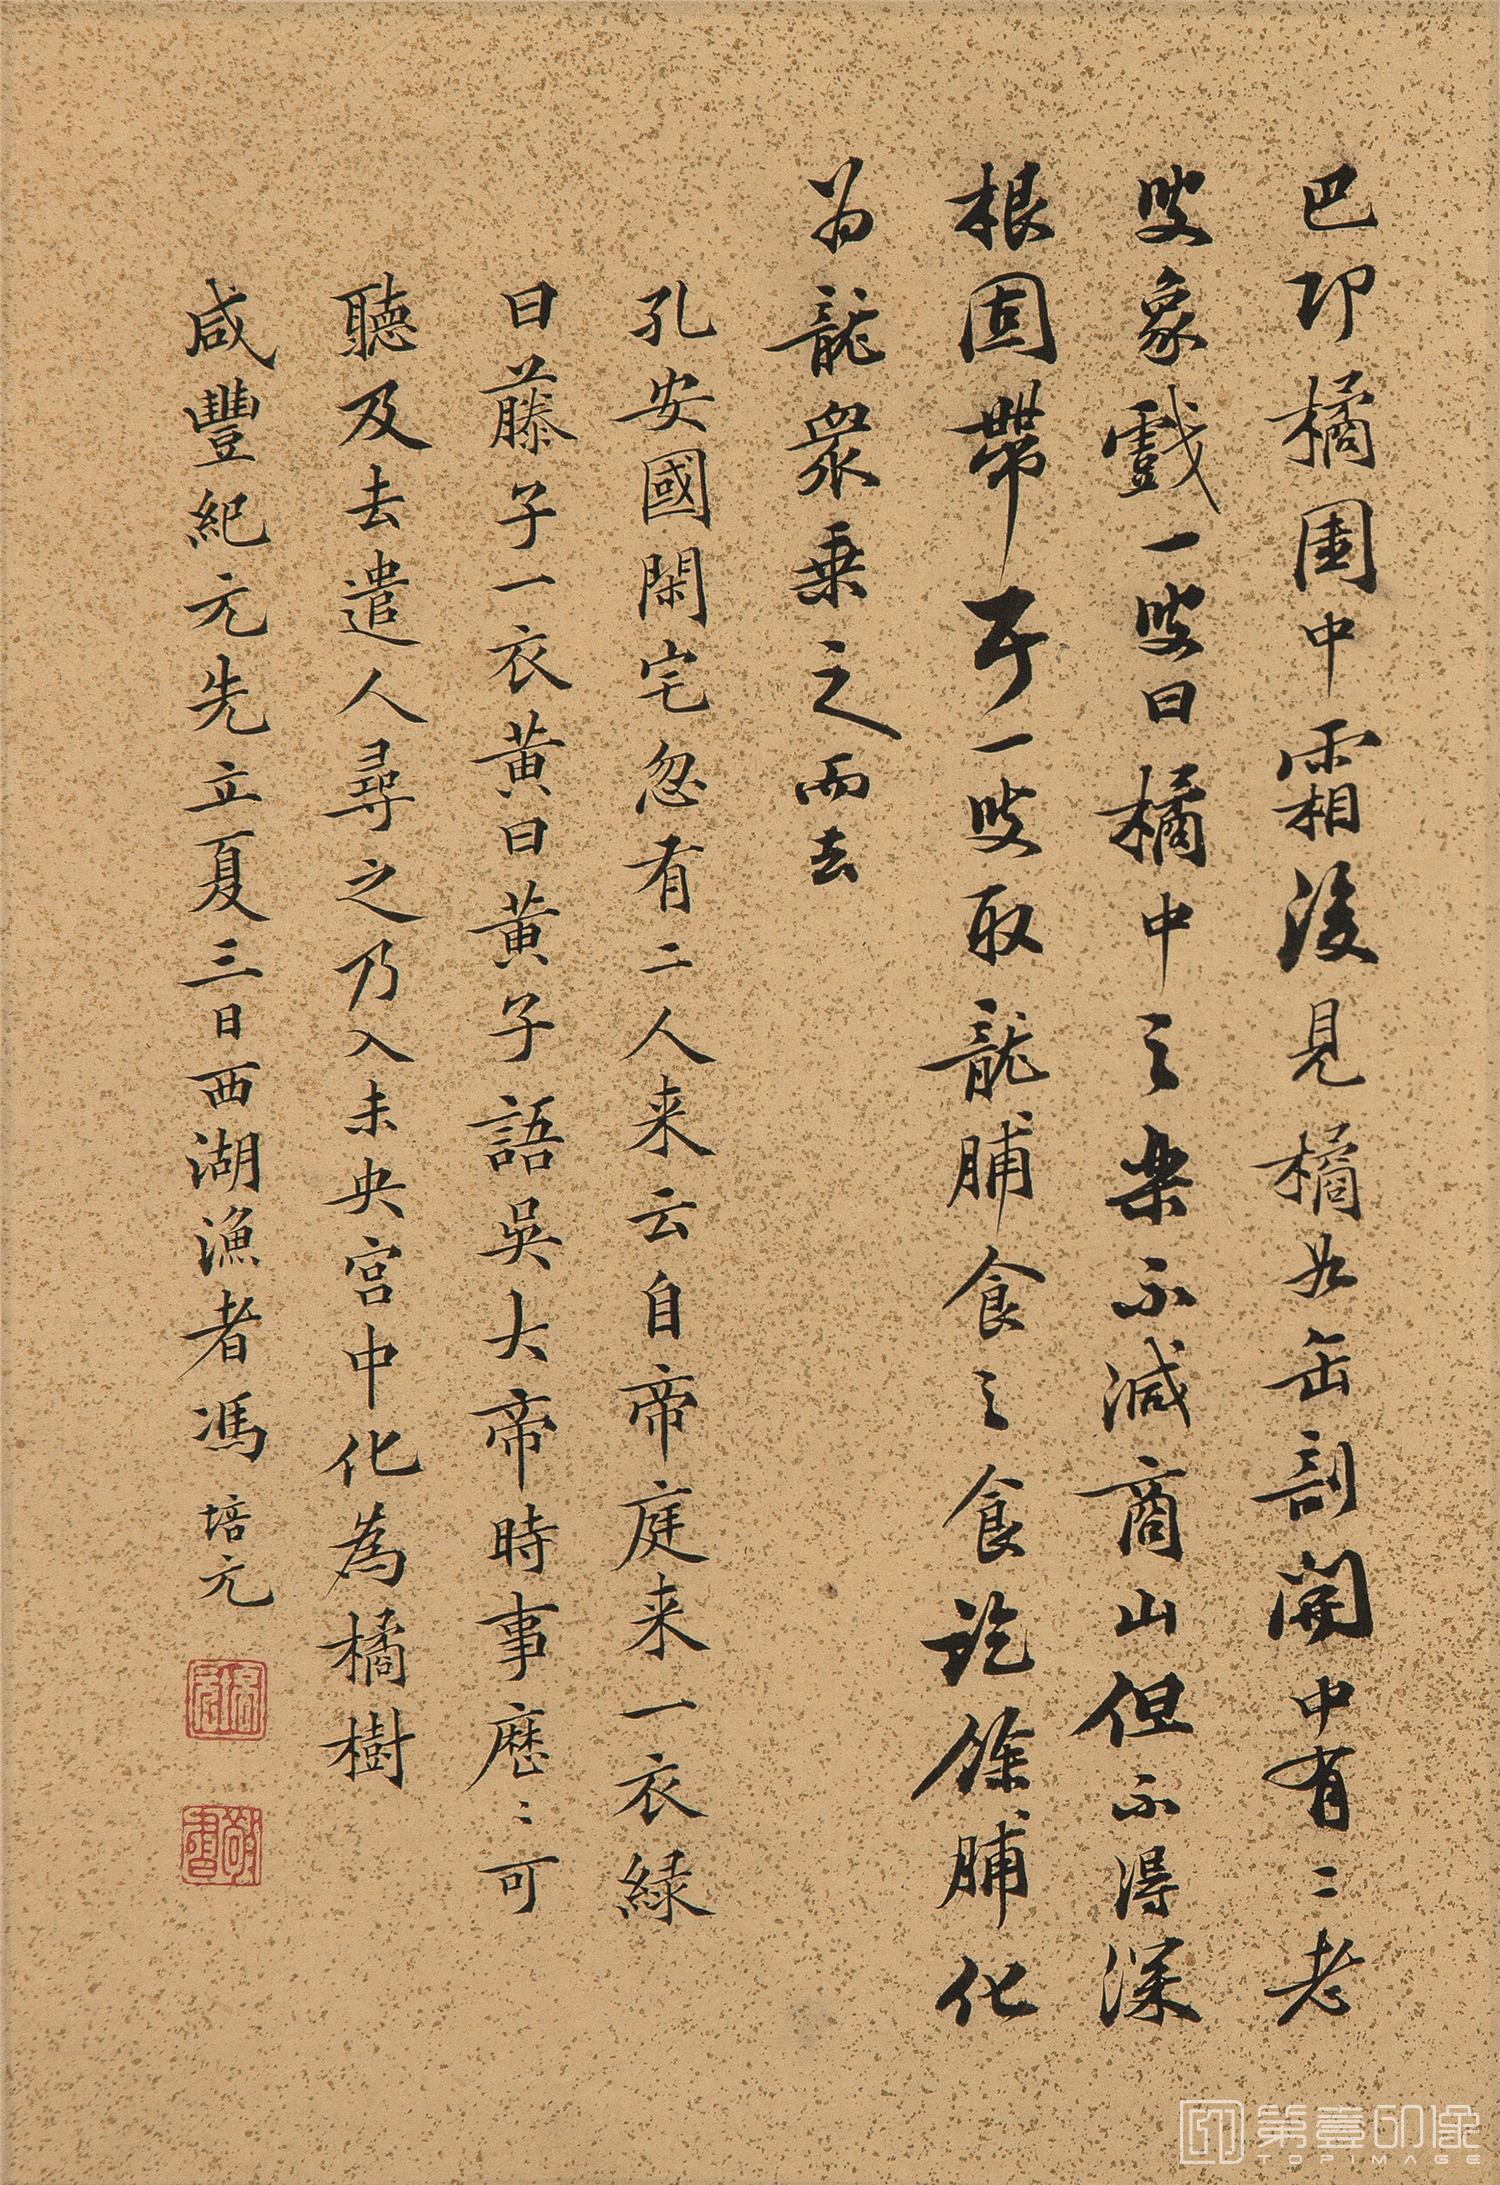 巴邛橘園中霜後見橘如缶剖開中有二老
叟象戲一叟曰橘中之樂不減商山但不得深
根固帶耳一叟取龍脯食之食訖餘脯化
為龍眾乘之而去
孔安國閑宅忽有二人来云自帝庭来一衣緑
曰藤子一衣黃曰黃子語吳大帝時事歷〻可
聽及去遣人尋之乃入未央宮中化為橘樹
咸豐紀元先立夏三日西湖漁者馮培元
第壹印像
TOPIMAGE